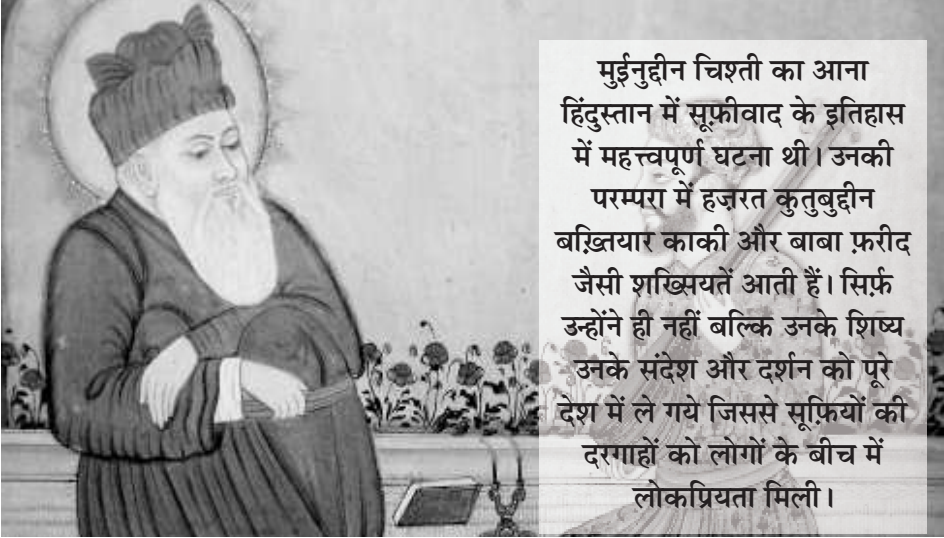 मुईनुद्दीन चिश्ती का आना
हिंदुस्तान में सूफ़ीवाद के इतिहास
में महत्त्वपूर्ण घटना थी। उनकी
परम्परा में हज़रत कुतुबुद्दीन
बख़्तियार काकी और बाबा फ़रीद
जैसी शख्सियतें आती हैं। सिर्फ़
उन्होंने ही नहीं बल्कि उनके शिष्य
उनके संदेश और दर्शन को पूरे
देश में ले गये जिससे सूफ़ियों की
दरगाहों को लोगों के बीच में
लोकप्रियता मिली।